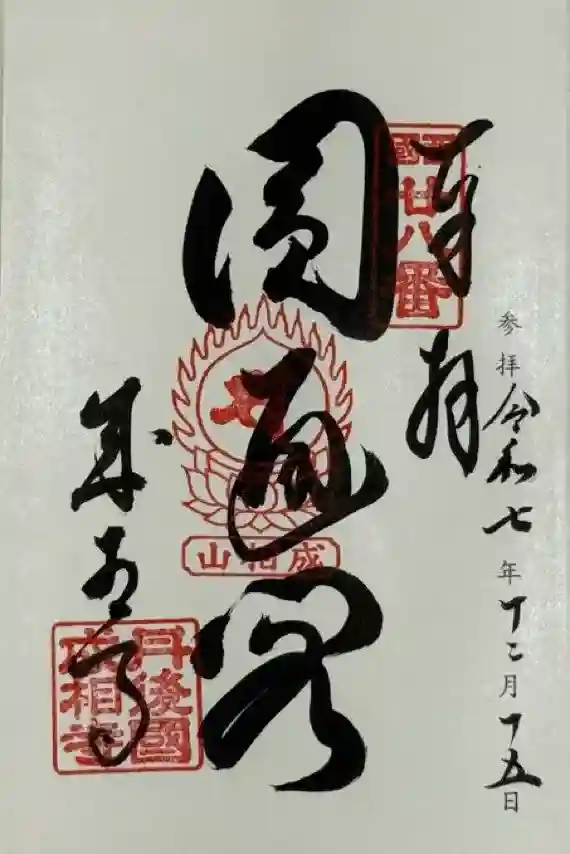 参拝令和七年十二月十五日
奉拝
西國廿八番
圓通閣
成相山
成相寺
丹後國成相寺